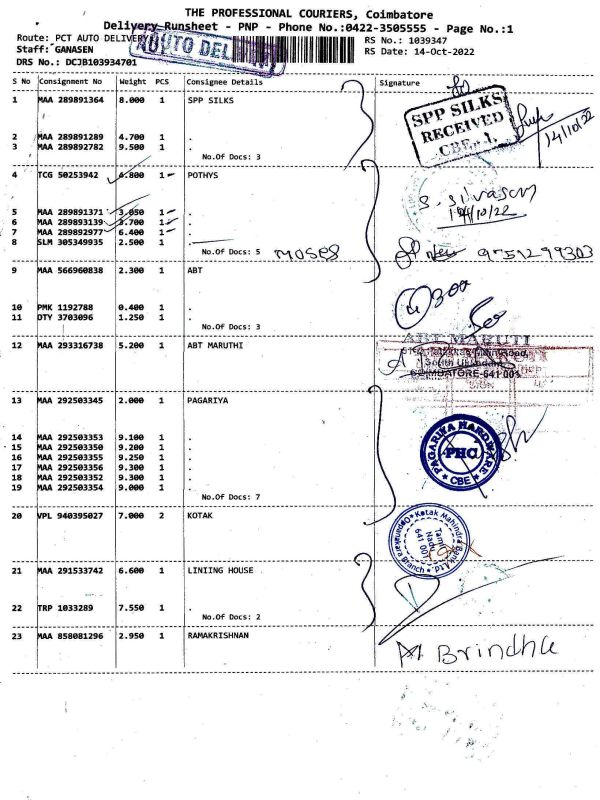 THE PROFESSIONAL COURIERS, Coimbatore
Delivery Runsheet - PNP - Phone No.:0422-3505555 - Page No.:1
Route: PCT AUTO DELIVERY
AUTO DEL
RS No.: 1039347
Staff: GANASEN
RS Date: 14-Oct-2022
DRS No.: DCJB103934701
S No Consignment No Weight PCS Consignee Details Signature
1 MAA 289891364 8.000 1 SPP SILKS
SPP SILKS
RECEIVED
CBE
14/10/22
2 MAA 289891289 4.700 1 .
3 MAA 289892782 9.500 1 .
No.Of Docs: 3
4 TCG 50253942 4.800 1 POTHYS
5 MAA 289891371 3.050 1 .
6 MAA 289893139 3.700 1 .
7 MAA 289892977 6.400 1 .
8 SLM 305349935 2.500 1 .
14/10/22
No.Of Docs: 5 MOSES 9751299303
9 MAA 566960838 2.300 1 ABT
10 PMK 1192788 0.400 1 .
11 DTY 3703096 1.250 1 .
No.Of Docs: 3
12 MAA 293316738 5.200 1 ABT MARUTHI
ABT MARUTI
COIMBATORE-641 001
13 MAA 292503345 2.000 1 PAGARIYA
14 MAA 292503353 9.100 1 .
15 MAA 292503350 9.200 1 .
16 MAA 292503355 9.250 1 .
17 MAA 292503356 9.300 1 .
18 MAA 292503352 9.300 1 .
19 MAA 292503354 9.000 1 .
No.Of Docs: 7
PAGARIYA HARDWARE
PHC
CBE
20 VPL 940395027 7.000 2 KOTAK
Kotak Mahindra Bank Ltd.
Tamil
Nadu
641 001
21 MAA 291533742 6.600 1 LINIING HOUSE
22 TRP 1033289 7.550 1 .
No.Of Docs: 2
23 MAA 858081296 2.950 1 RAMAKRISHNAN
Brindha